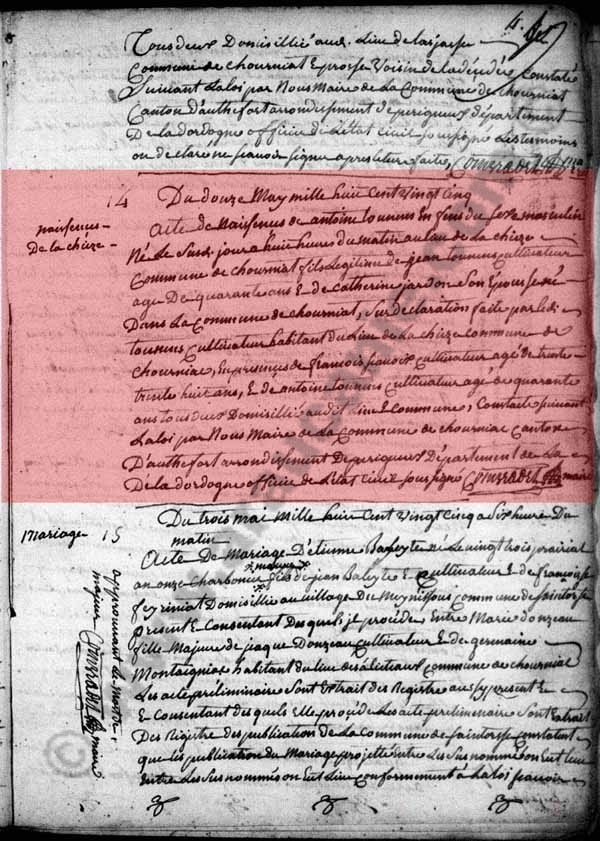 Tous deux Domisillié audi Lieu de
Commune de chourniat Eprosse Voisin de la dé constaté
Suivant La loi par Nous Maire de La Commune de chourniat
Canton d'authefort arrondissement de perigueux département
De la dordogne officier de L'état civil soussigné Les temoins
on declaré ne savoir signé apres lecture faite, Comradet
14
Du douze May mille huit Cent Vingt Cinq
naissences
De la chieze
Acte de Naissences de antoine tounens Enfens du sexe masculin
Né Le Susdi jour a huit heures du matin au Lieu de La chieze
Commune de chourniat fils Legitime de jean tounens Cultivateur
age De quarante ans E de Catherine jardon Son Epouse né
Dans La Commune de chourniat, Sur declaration faite par ledi
tounens Cultivateur habitant du Lieu de La chieze Commune de
chourniac, En presences de francois Cultivateur agé de trente
trente huit ans, E de antoine tounens Cultivateur agé de quarante
ans tous deux Domisillié audit Lieu E Commune, Constaté suivant
La loi par Nous Maire de La Commune de chourniac Canton
D'authefort arrondissement De perigueux Département de La
De la dordogne officier de L'état Civil soussigné Comradet maire
Du trois mai Mille huit Cent Vingt Cinq a Six heure Du
Mariage 15
matin
Acte De Mariage D'etienne Baleyte né Le vingt trois prairial
majeur
an onze Charbonier fils de jean Baleyte E Cultivateur E de francoisse
feyriniat Domisillié au village Du Commune de
present E Consentant Des quels il procéde, Entre Marie donzeau
fille Majeure de jaque Donzeau Cultivateur E de germaine
Montaigniat habitant du lieu de Commune de chourniat
Les acte preliminaire Sont Extrait des Registre au present E
E Consentant des quels Elle procéde Les acte prelimenaire Sont Extrait
Des Registre des publication de La Commune de constatant
que les publication du Mariage projetté entre Les Sus nommé on Eut lieu
Entre Les Sus nommés on Eut Lieu Conformement à La loi
approuvant le mot de
majeur Comradet maire